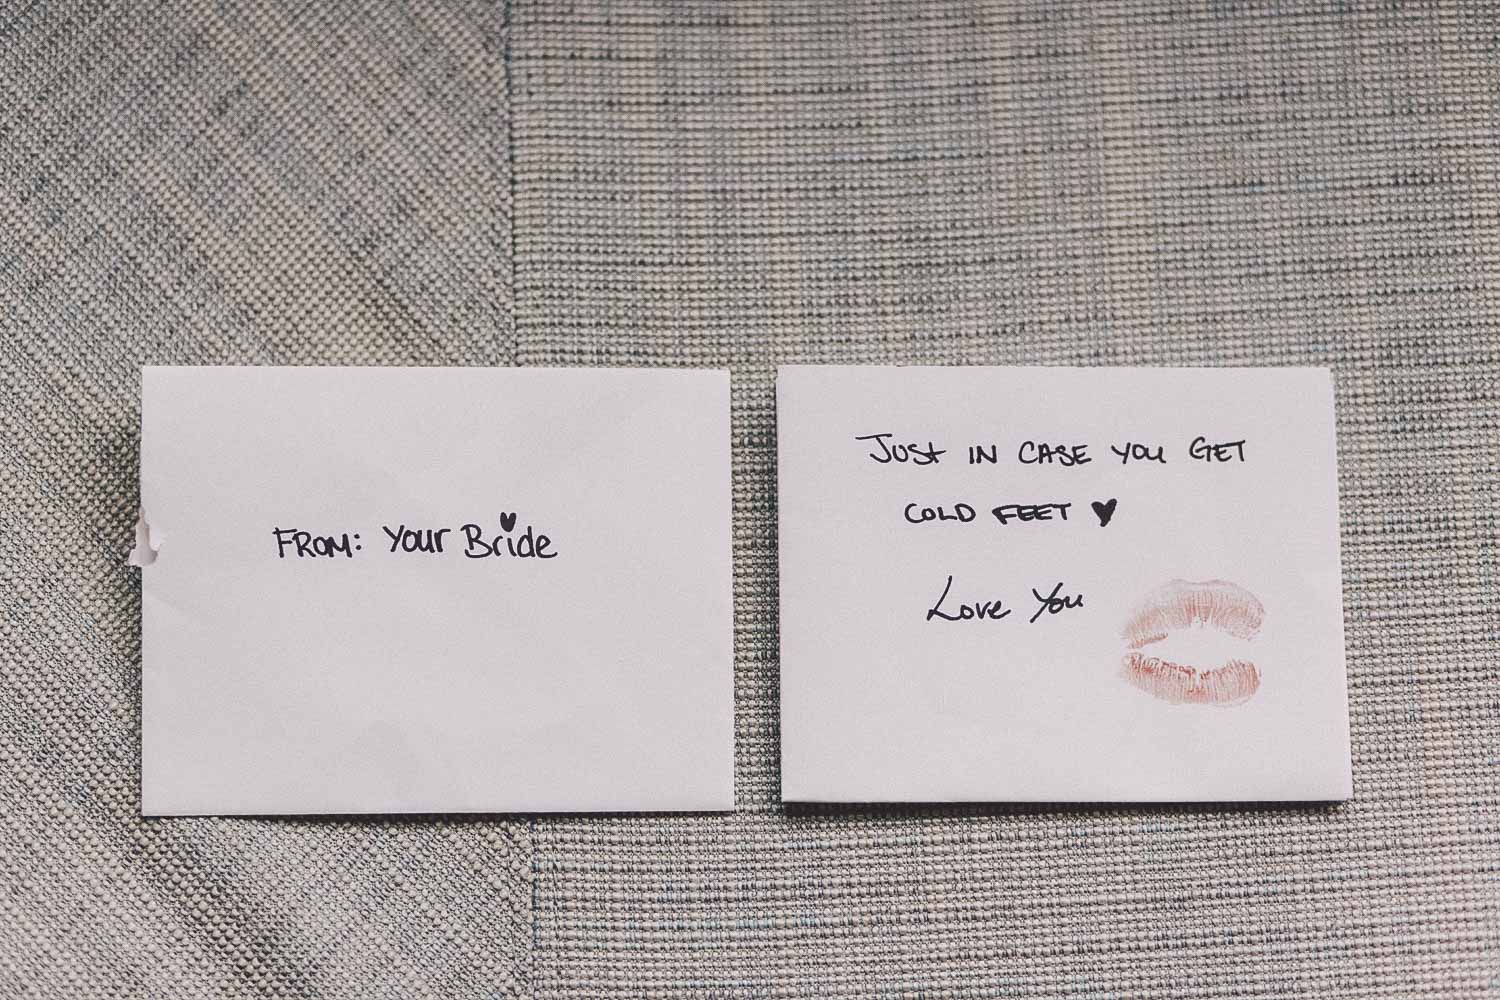 FROM: Your Bride
JUST IN CASE YOU GET
COLD FEET ♥
Love You